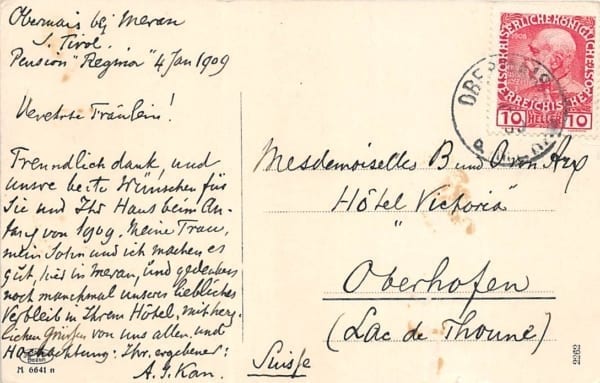 Obermais bei Meran
S. Tirol.
Pension "Regina" 4 Jan 1909
Verehrte Fräulein!
Freundlich dank, und
unsre beste Wünschen für
Sie und Ihr Haus beim An-
fang von 1909. Meine Frau,
mein Sohn und ich machen es
gut, hier in Meran, und gedenken
noch manchmal unseres liebliches
Verbleib in Ihrem Hôtel, mit herz-
lichen Grüssen von uns allen, und
Hochachtung: Ihr ergebener:
A. J. Kan.
M 6641 n
Mesdemoiselles B und O von Arx
Hôtel Victoria
Oberhofen
(Lac de Thoune)
Suisse
KAISERLICHE KÖNIGLICHE
ÖSTERREICHISCHE POST
1908
10 HELLER 10
OBERMAIS
2262